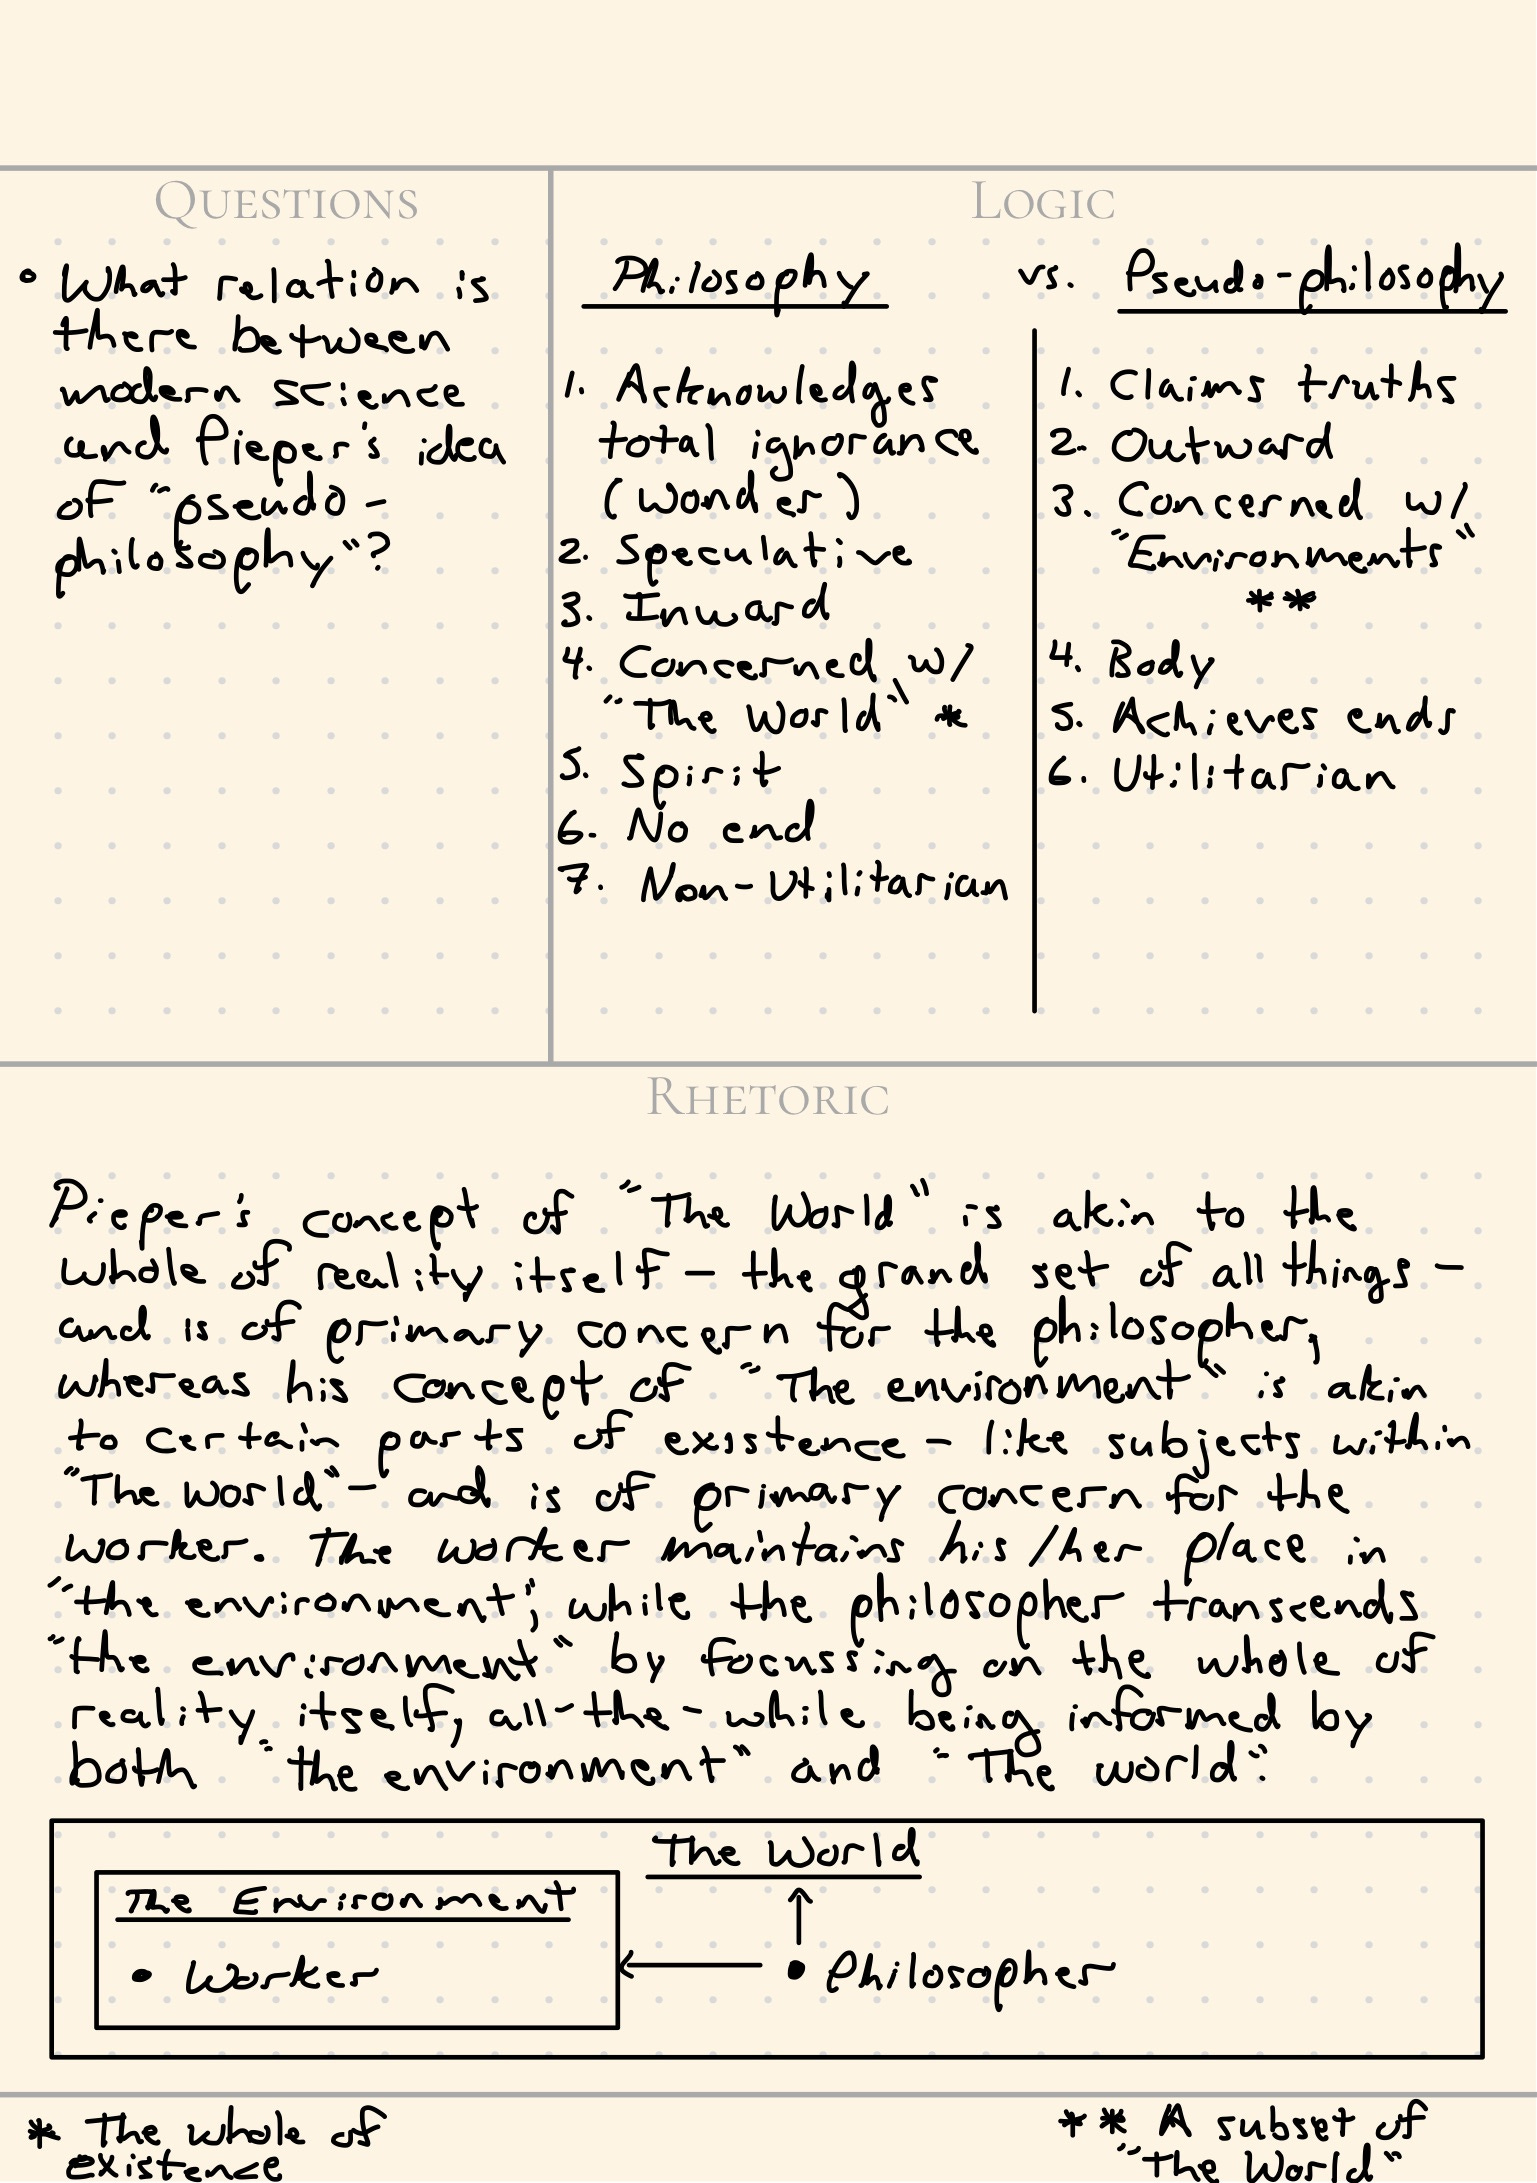 QUESTIONS
• What relation is
there between
modern science
and Pieper's idea
of "pseudo-
philosophy"?
LOGIC
Philosophy vs. Pseudo-philosophy
1. Acknowledges
total ignorance
(wonder)
2. Speculative
3. Inward
4. Concerned w/
"The World" *
5. Spirit
6. No end
7. Non-Utilitarian
1. Claims truths
2. Outward
3. Concerned w/
"Environments"
**
4. Body
5. Achieves ends
6. Utilitarian
RHETORIC
Pieper's concept of "The World" is akin to the
whole of reality itself – the grand set of all things –
and is of primary concern for the philosopher,
whereas his concept of "The environment" is akin
to certain parts of existence – like subjects within
"The world" – and is of primary concern for the
worker. The worker maintains his/her place in
"the environment", while the philosopher transcends
"the environment" by focussing on the whole of
reality itself, all-the-while being informed by
both "the environment" and "The world".
The World
The Environment
• Worker
• Philosopher
* The whole of
existence
** A subset of
"The World"